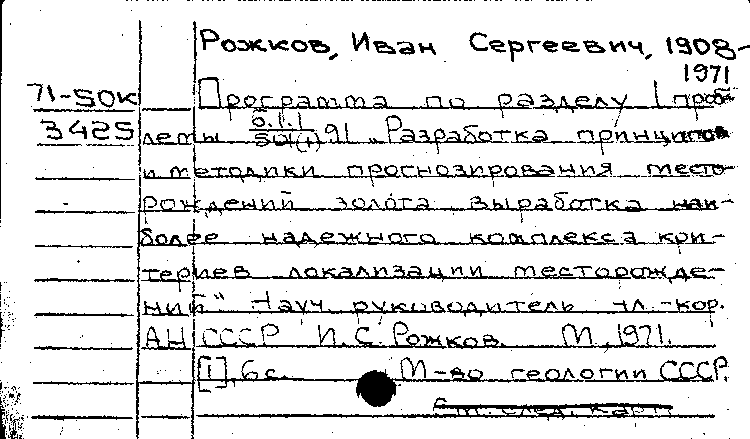 Рожков, Иван Сергеевич, 1908-
1971
71-50к Программа по разделу 1 проб-
3425 лемы 0.1.1 / 501(1) 91 „Разработка принципов
и методики прогнозирования место-
рождений золота выработка наи-
более надежного комплекса кри-
териев локализации месторожде-
ний" Науч. руководитель чл.-кор.
АН СССР И.С. Рожков. М, 1971.
[1], 6 с. М-во геологии СССР.
См. след. карт.